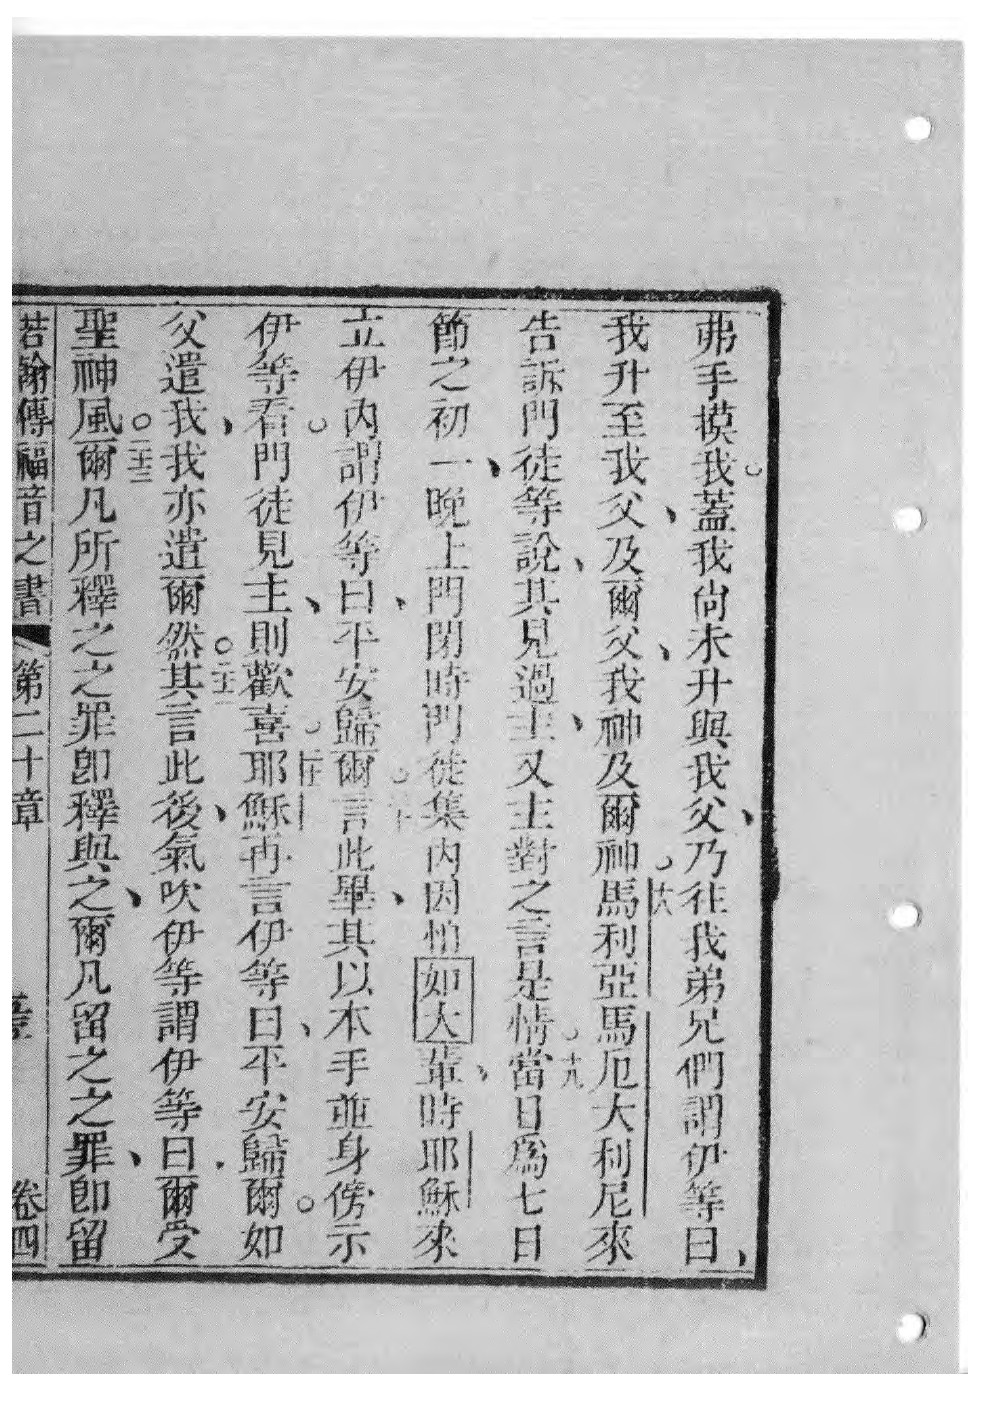 弗手摸我。蓋我尚未升與我父、乃往我弟兄們謂伊等曰、
我升至我父、及爾父、我神及爾神。十八馬利亞馬厄大利尼來
告訴門徒等說、其見過主、又主對之言是情。十九當日爲七日
節之初一、晚上門閉時門徒集內因怕如大輩、時耶穌來
立伊內謂伊等曰、平安歸爾。二十言此畢、其以本手並身傍示
伊等看。門徒見主、則歡喜。二十一耶穌再言伊等曰、平安歸爾。如
父遣我、我亦遣爾然。二十二其言此後、氣吹伊等謂伊等曰、爾受
聖神風。二十三爾凡所釋之之罪卽釋與之、爾凡留之之罪、卽留
若翰傳福音之書 第二十章 卷四